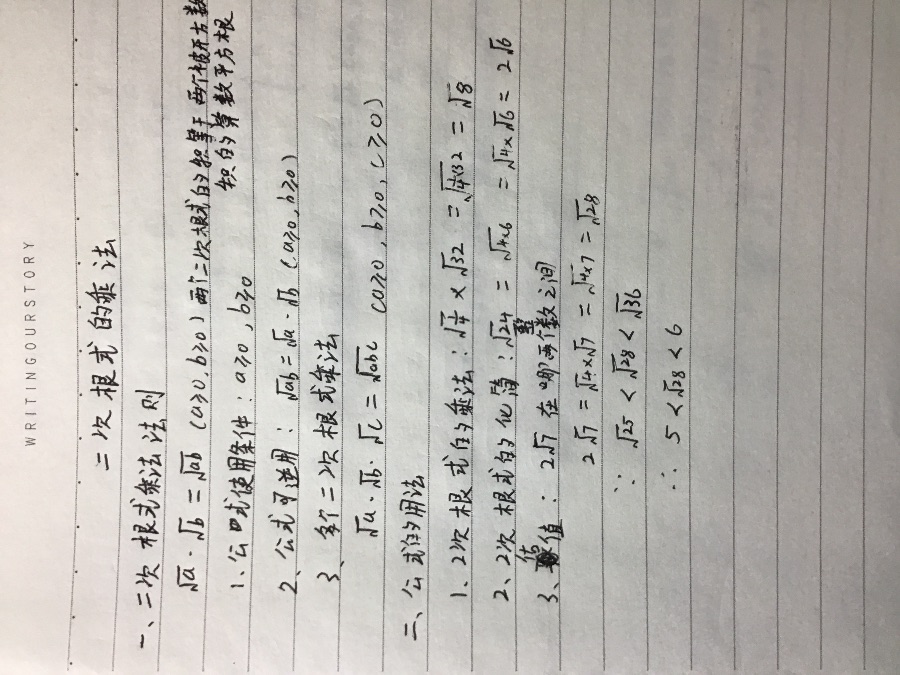 WRITINGOURSTORY
二次根式的乘法
一、二次根式乘法法则
√a·√b=√ab (a≥0,b≥0)两个二次根式的积等于两个被开方数
积的算数平方根
1、公式使用条件:a≥0,b≥0
2、公式可逆用:√ab=√a·√b (a≥0,b≥0)
3、多个二次根式乘法
√a·√b·√c=√abc (a≥0,b≥0,c≥0)
二、公式的用法
1、2次根式的乘法:√1/4×√32=√1/4×32=√8
2、2次根式的化简:√24=√4×6=√4×√6=2√6
3、估值:2√7在哪两个整数之间
2√7=√4×√7=√4×7=√28
∵√25<√28<√36
∴5<√28<6